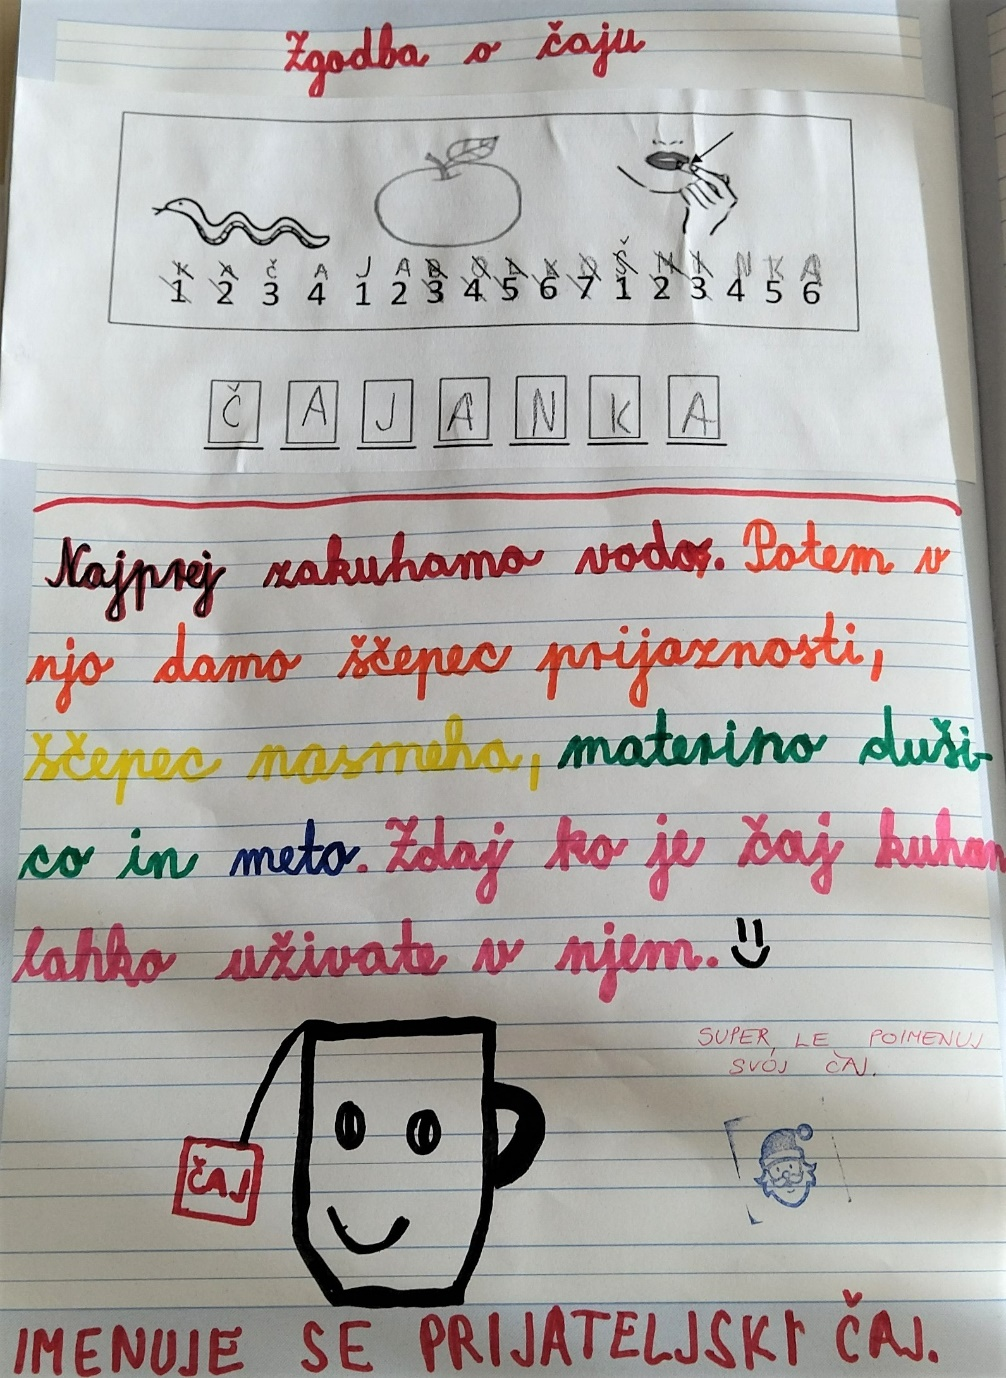 Zgodba o čaju
K A Č A J A B O L K O Š M I N K A
1 2 3 4 1 2 3 4 5 6 7 1 2 3 4 5 6
Č A J A N K A
Najprej zakuhamo vodo. Potem v
njo damo ščepec prijaznosti,
ščepec nasmeha, materino duši-
co in meto. Zdaj ko je čaj kuhan
lahko uživate v njem.
SUPER, LE POIMENUJ
SVOJ ČAJ.
ČAJ
IMENUJE SE PRIJATELJSKI ČAJ.